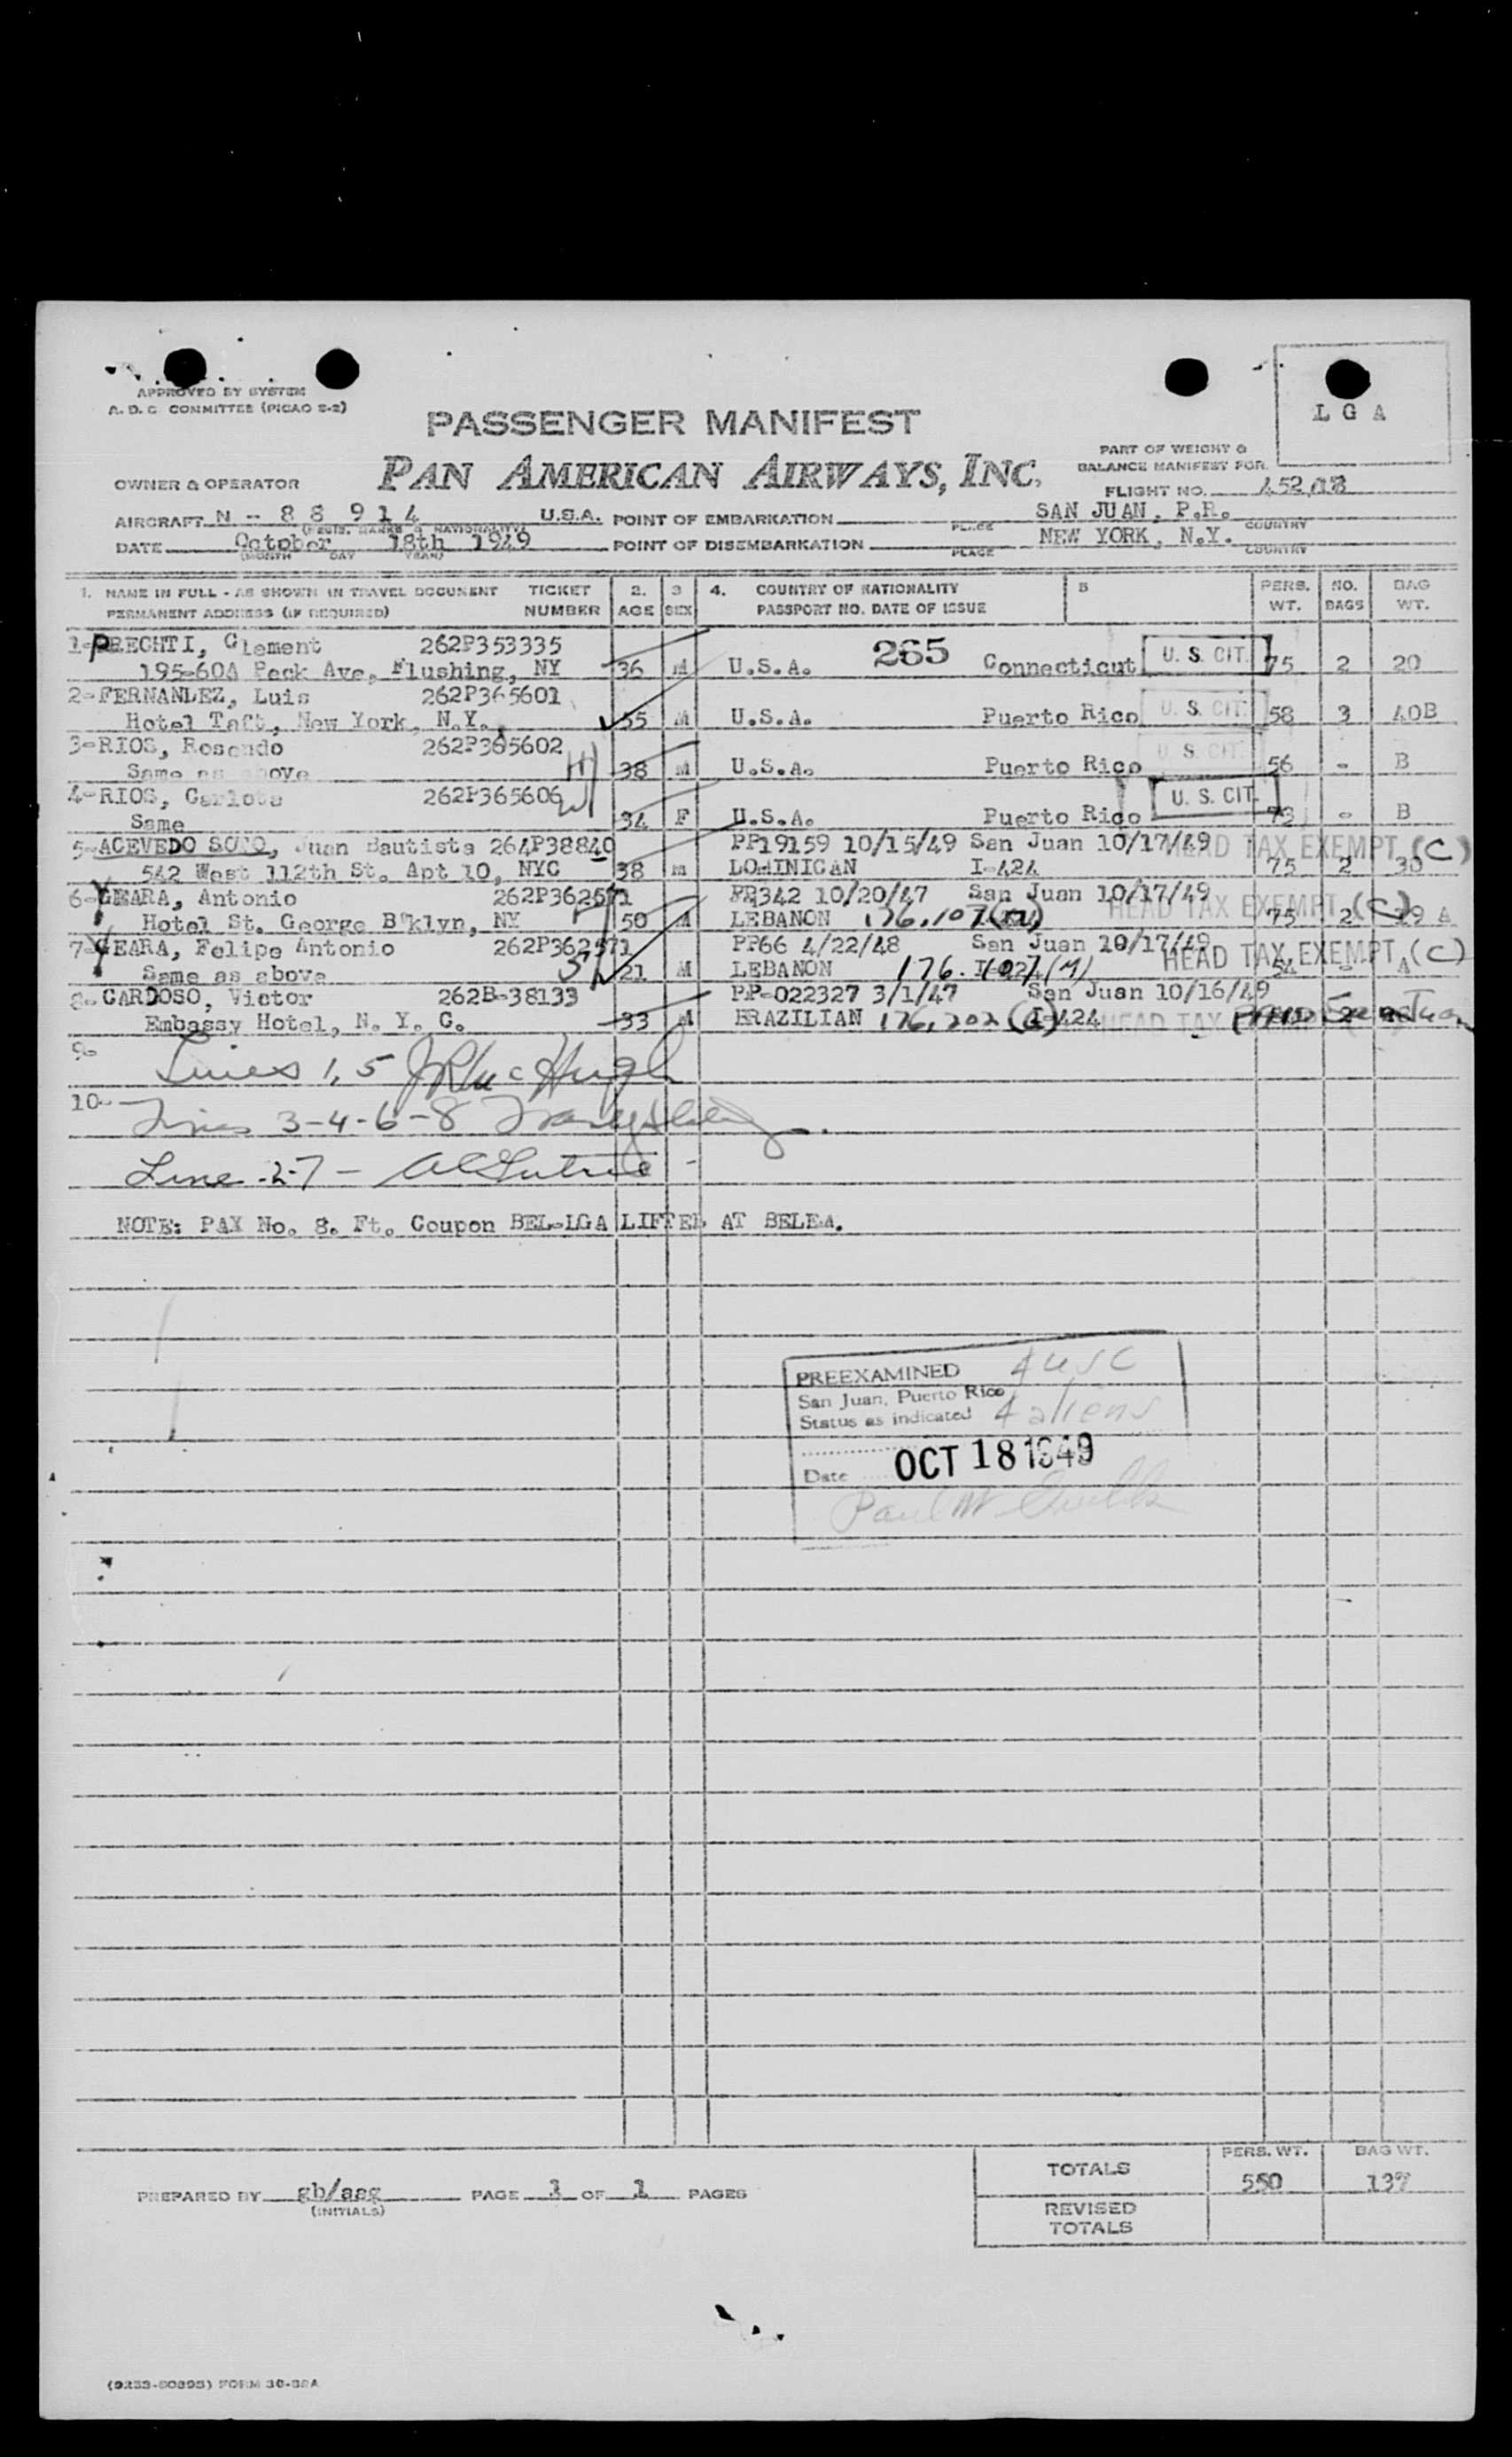 APPROVED BY SYSTEM
A. D. C. COMMITTEE (PICAO S-2)
L G A
PASSENGER MANIFEST
PART OF WEIGHT &
BALANCE MANIFEST FOR
OWNER & OPERATOR PAN AMERICAN AIRWAYS, INC.
FLIGHT NO. 452/18
AIRCRAFT N - 8 8 9 1 4 U.S.A. POINT OF EMBARKATION SAN JUAN, P.R.
(REGIS. MARKS & NATIONALITY) PLACE COUNTRY
DATE October 18th 1949 POINT OF DISEMBARKATION NEW YORK, N.Y.
(MONTH DAY YEAR) PLACE COUNTRY
1. NAME IN FULL - AS SHOWN IN TRAVEL DOCUMENT TICKET 2. 3 4. COUNTRY OF NATIONALITY 5 PERS. NO. BAG
PERMANENT ADDRESS (IF REQUIRED) NUMBER AGE SEX PASSPORT NO. DATE OF ISSUE WT. BAGS WT.
1-PRECHTI, Clement 262P353335
195-60A Peck Ave, Flushing, NY 36 M U.S.A. 265 Connecticut U. S. CIT. 75 2 20
2-FERNANDEZ, Luis 262P365601
Hotel Taft, New York, N.Y. 55 M U.S.A. Puerto Rico U. S. CIT. 58 3 40B
3-RIOS, Rosendo 262P365602
Same as above 38 M U.S.A. Puerto Rico U. S. CIT. 56 - B
4-RIOS, Carlota 262P365606
Same 34 F U.S.A. Puerto Rico U. S. CIT. 73 - B
5-ACEVEDO SOTO, Juan Bautista 264P38840 PP19159 10/15/49 San Juan 10/17/49 HEAD TAX EXEMPT (C)
542 West 112th St. Apt 10, NYC 38 M DOMINICAN I-424 75 2 30
6-GEARA, Antonio 262P362571 PP342 10/20/47 San Juan 10/17/49 HEAD TAX EXEMPT (C)
Hotel St. George B'klyn, NY 50 M LEBANON 176.107(M) 75 2 19 A
7-GEARA, Felipe Antonio 262P362571 PP66 4/22/48 San Juan 10/17/49 HEAD TAX EXEMPT (C)
Same as above 21 M LEBANON 176.107(M) 54 - A
8-CARDOSO, Victor 262B-38133 PP-022327 3/1/47 San Juan 10/16/49
Embassy Hotel, N. Y. C. 33 M BRAZILIAN 176.202 I-424 HEAD TAX PAID San Juan
9-
Lines 1, 5 JR McHugh
10-
Lines 3-4-6-8
Line 2-7 -
NOTE: PAX No. 8. Ft. Coupon BEL-LGA LIFTED AT BELEM.
PREEXAMINED 4 USC
San Juan, Puerto Rico
Status as indicated 4 aliens
Date OCT 18 1949
Paul W
TOTALS PERS. WT. BAG WT.
550 137
PREPARED BY gb/aag PAGE 1 OF 1 PAGES
(INITIALS)
REVISED
TOTALS
(9233-50895) FORM 30-32A